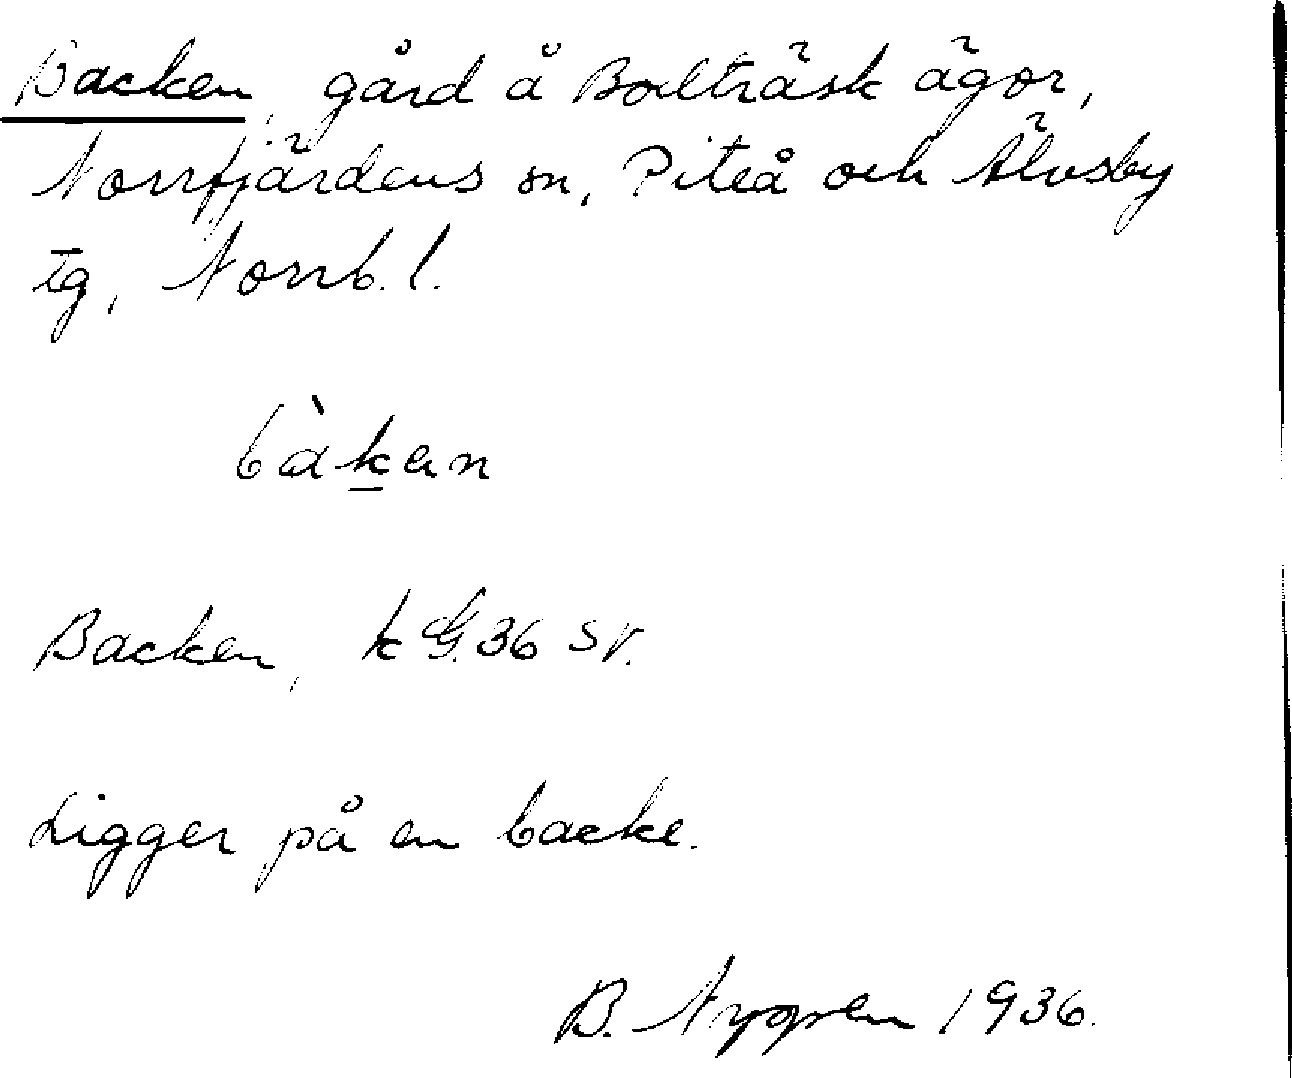 Backen, gård å Bodträsk ägor,
Norrfjärdens sn, Piteå och Älvsby
tg, Norrb. l.
bàkan
Backen, k 36 SV.
Ligger på en backe.
B. Nygren 1936.